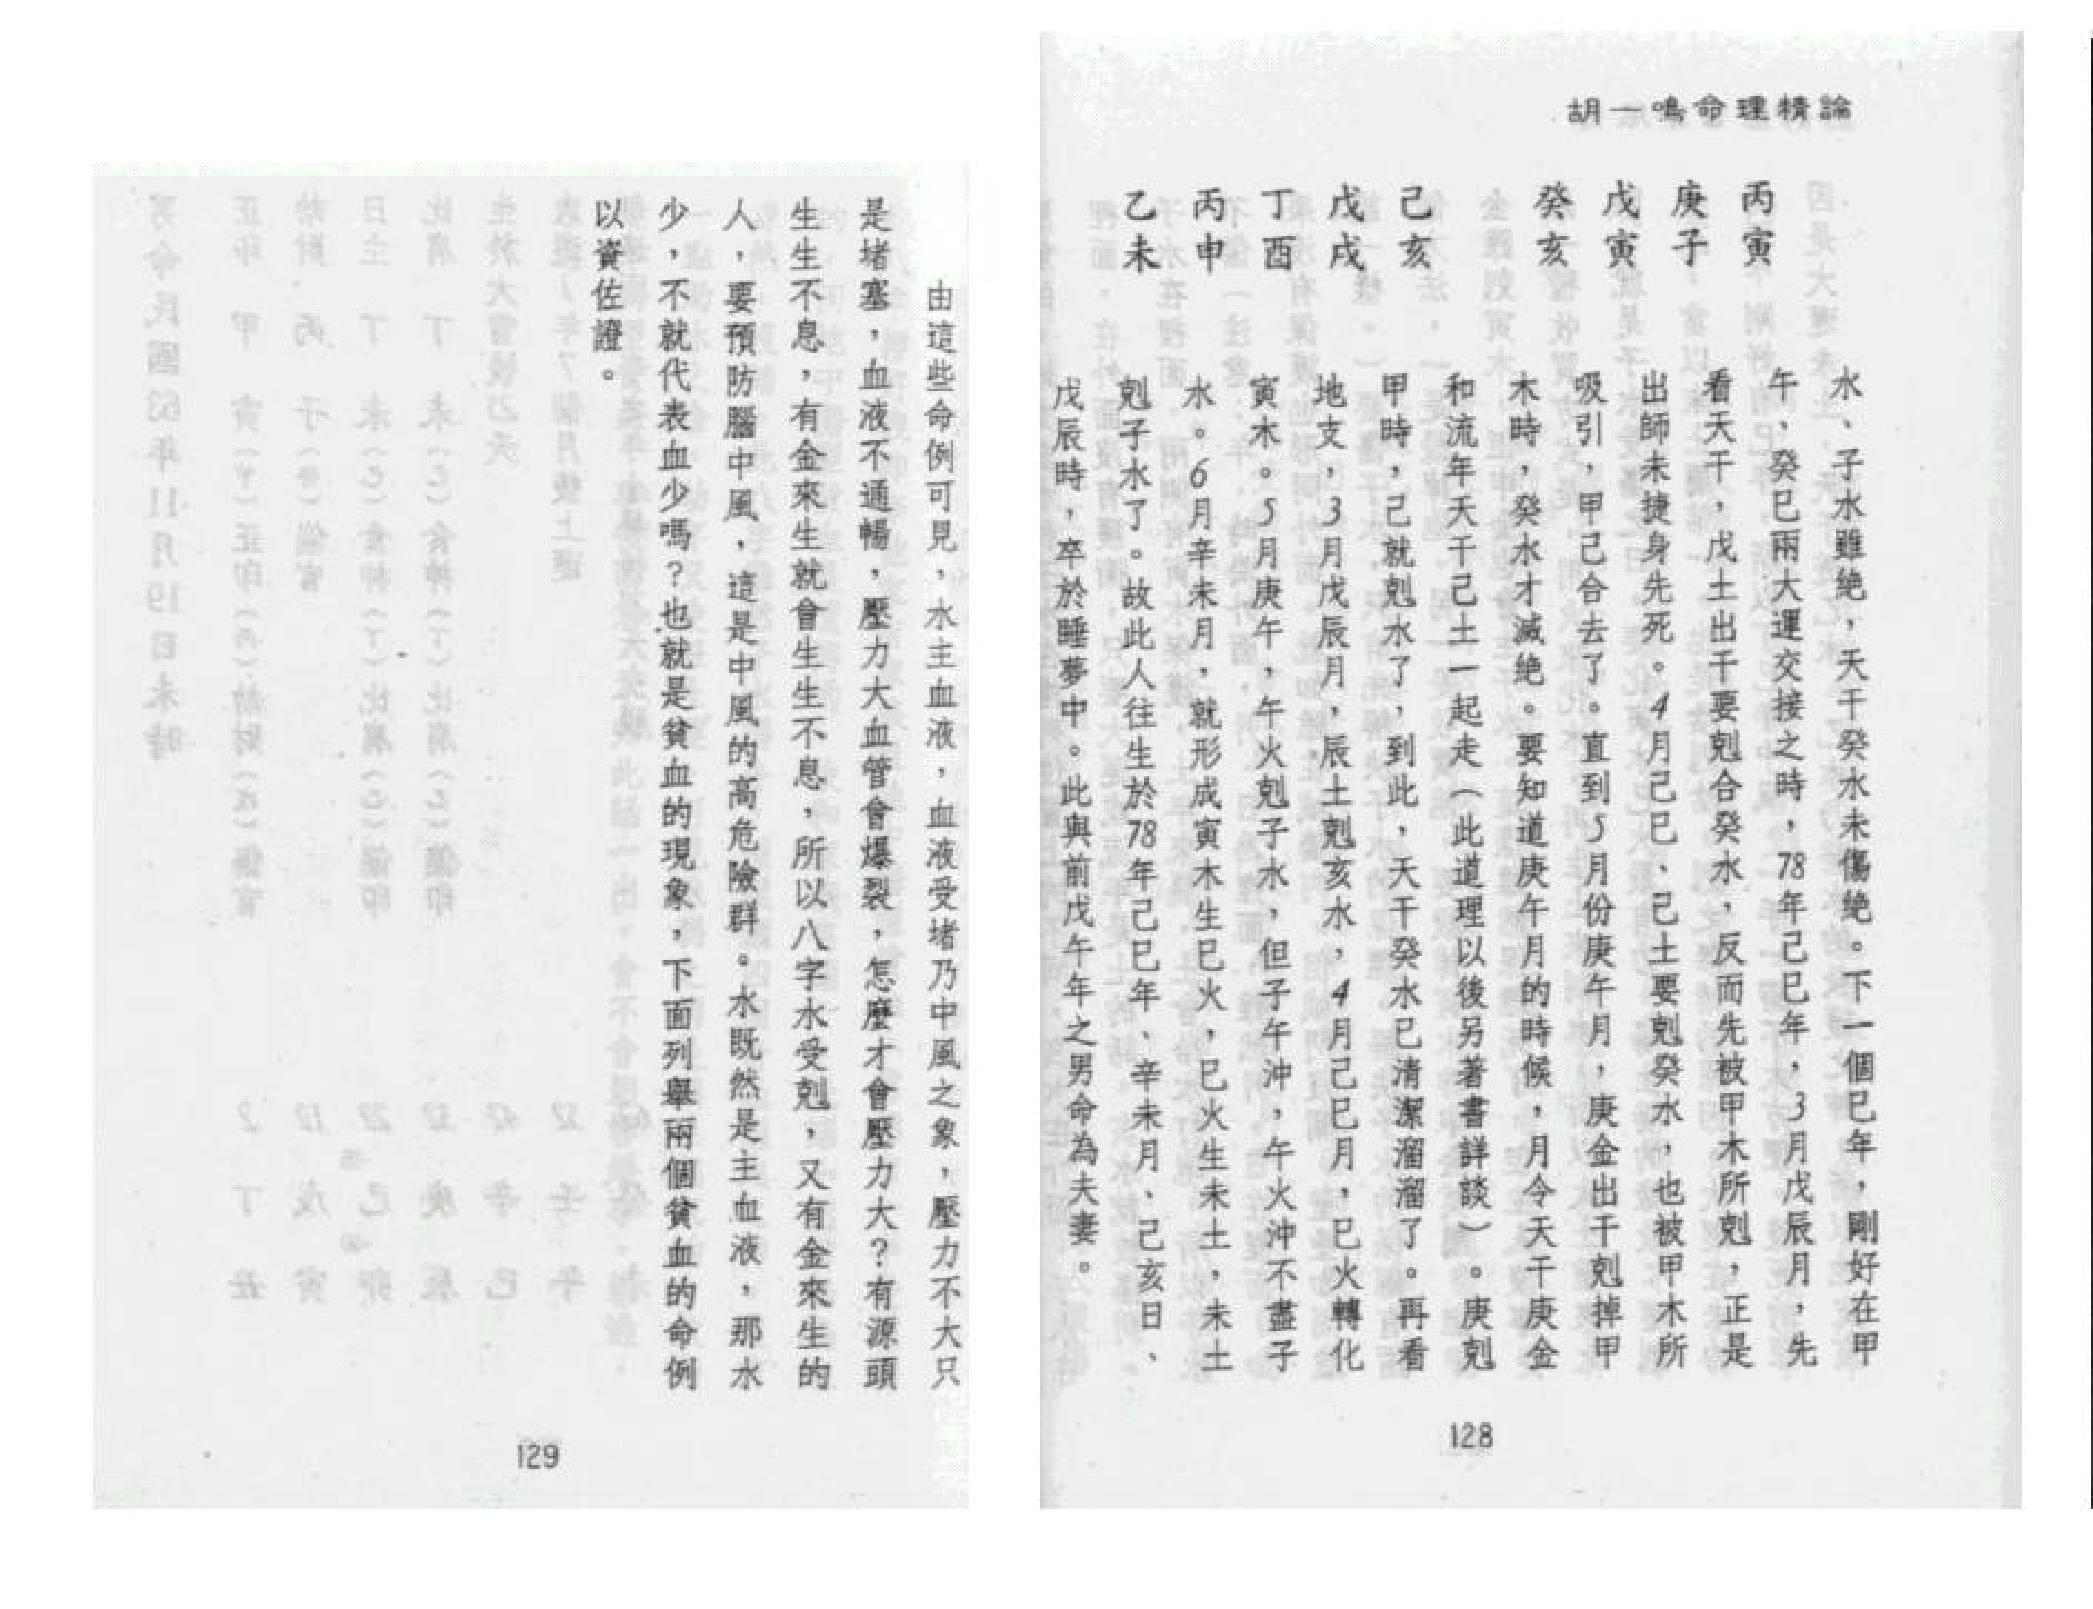 胡一鳴命理精論
丙寅
庚子
戊寅
癸亥
己亥
戊戌
丁酉
丙申
乙未
水、子水雖絕，天干癸水未傷絕。下一個巳年，剛好在甲
午、癸巳兩大運交接之時，78年己巳年，3月戊辰月，先
看天干，戊土出干要剋合癸水，反而先被甲木所剋，正是
出師未捷身先死。4月己巳、己土要剋癸水，也被甲木所
吸引，甲己合去了。直到5月份庚午月，庚金出干剋掉甲
木時，癸水才滅絕。要知道庚午月的時候，月令天干庚金
和流年天干己土一起走（此道理以後另著書詳談）。庚剋
甲時，己就剋水了，到此，天干癸水已清潔溜溜了。再看
地支，3月戊辰月，辰土剋亥水，4月己巳月，巳火轉化
寅木。5月庚午，午火剋子水，但子午沖，午火沖不盡子
水。6月辛未月，就形成寅木生巳火，巳火生未土，未土
剋子水了。故此人往生於78年己巳年、辛未月、己亥日、
戊辰時，卒於睡夢中。此與前戊午年之男命為夫妻。
128
由這些命例可見，水主血液，血液受堵乃中風之象，壓力不大只
是堵塞，血液不通暢，壓力大血管會爆裂，怎麼才會壓力大？有源頭
生生不息，有金來生就會生生不息，所以八字水受剋，又有金來生的
人，要預防腦中風，這是中風的高危險群。水既然是主血液，那水
少，不就代表血少嗎？也就是貧血的現象，下面列舉兩個貧血的命例
以資佐證。
129